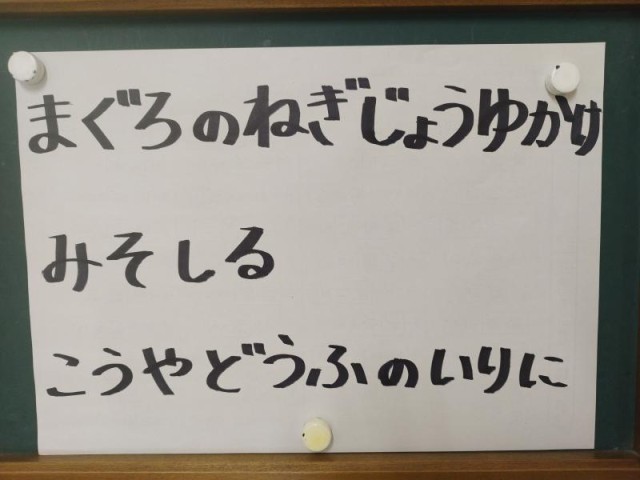 まぐろのねぎじょうゆかけ
みそしる
こうやどうふのいりに